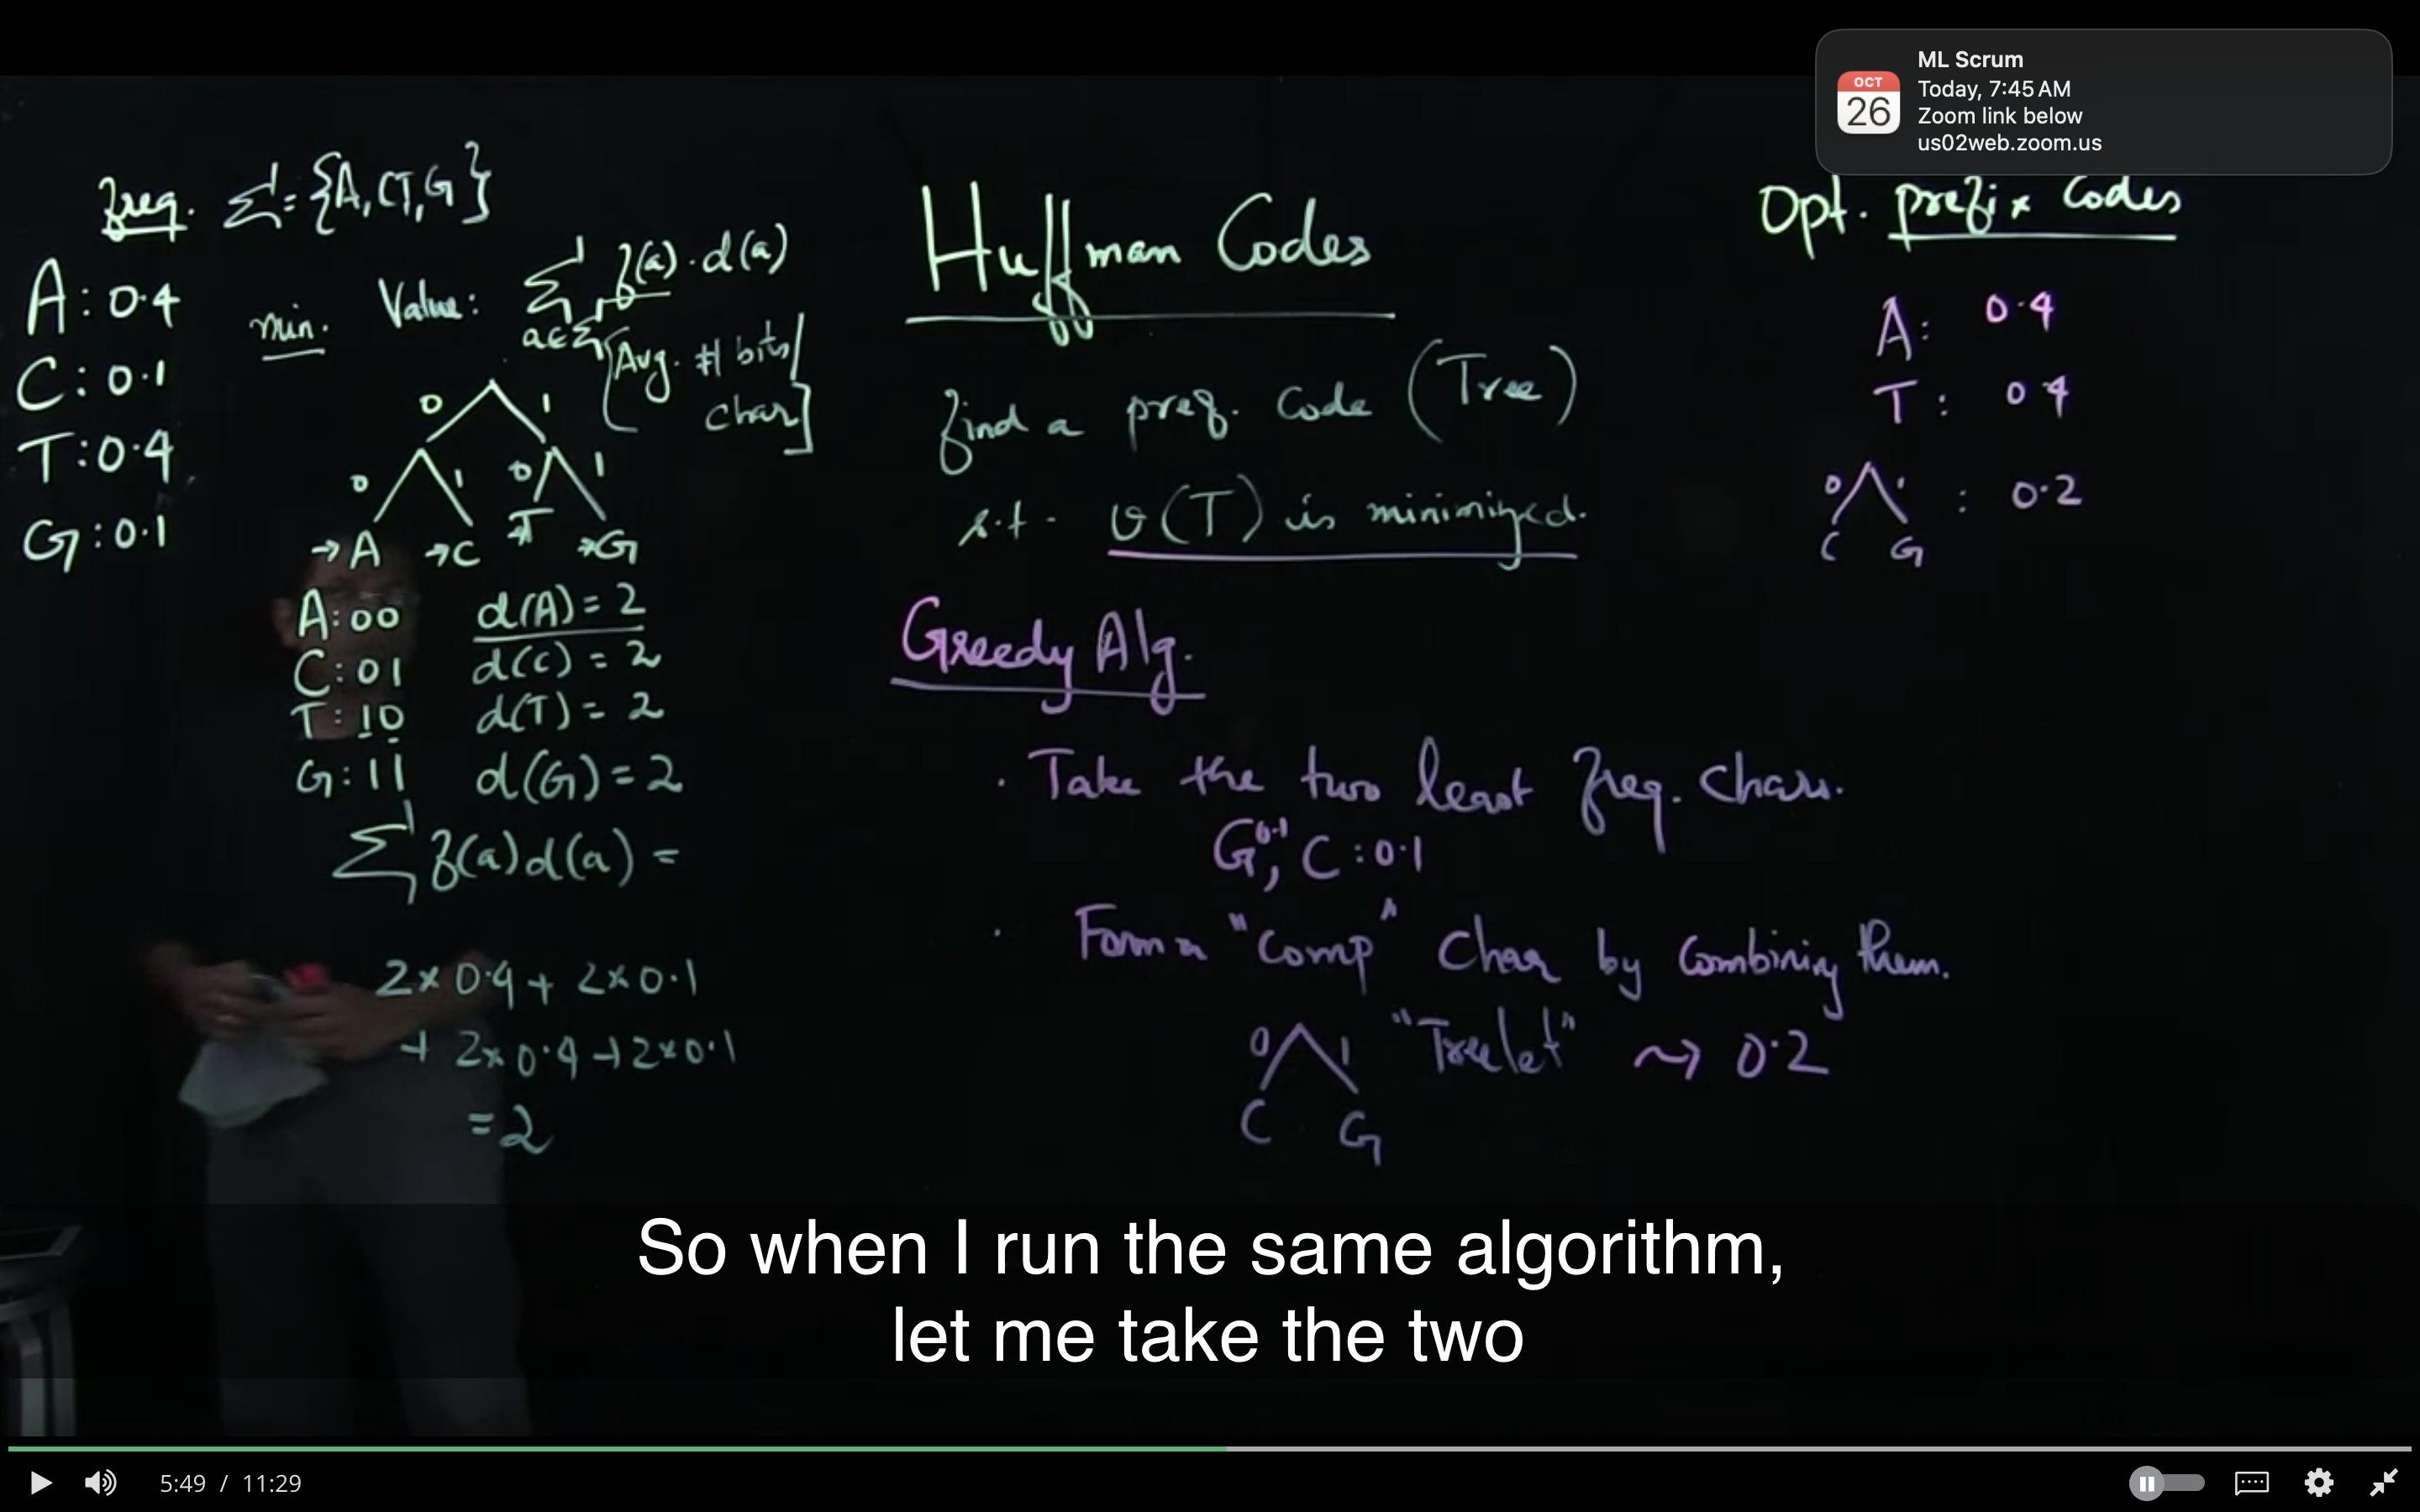 ML Scrum
OCT
26
Today, 7:45 AM
Zoom link below
us02web.zoom.us
freq. Σ = {A, C, T, G}
A : 0.4
C : 0.1
T : 0.4
G : 0.1
min. Value: Σ f(a) · d(a)
a ∈ Σ
[Avg. # bits/
char]
0 1
0 1 0 1
→A →C →T →G
A: 00 d(A) = 2
C: 01 d(C) = 2
T: 10 d(T) = 2
G: 11 d(G) = 2
Σ f(a) d(a) =
2 × 0.4 + 2 × 0.1
+ 2 × 0.4 + 2 × 0.1
= 2
Huffman Codes
find a pref. code (Tree)
s.t. v(T) is minimized.
Greedy Alg.
· Take the two least freq. chars.
G 0.1, C : 0.1
· Form a "Comp" Char by Combining them.
0 1 "Treelet" ⇝ 0.2
C G
Opt. prefix Codes
A: 0.4
T: 0.4
0 1 : 0.2
C G
So when I run the same algorithm,
let me take the two
5:49 / 11:29